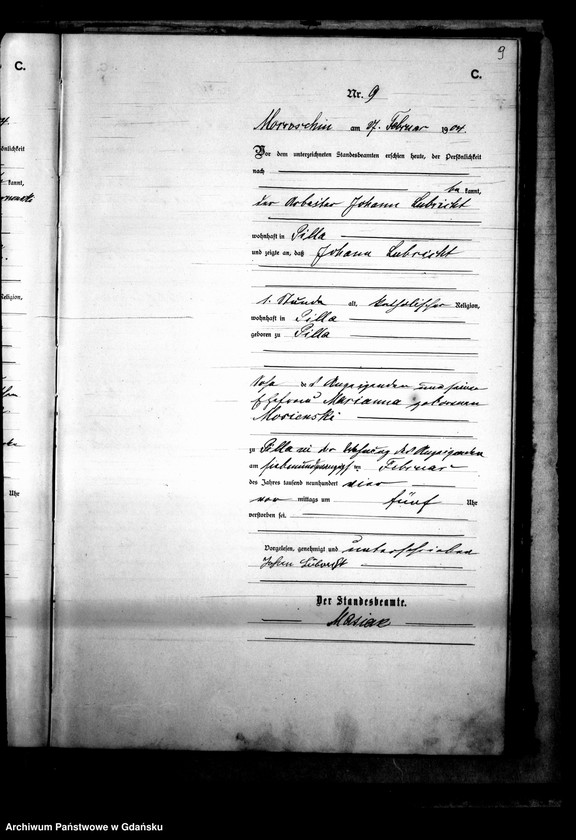 9
C.
C.
Nr. 9
am 27. Februar 1904.
Vor dem unterzeichneten Standesbeamten erschien heute, der Persönlichkeit
nach
be kannt,
der Arbeiter Johann Lubricht
wohnhaft in Pilla
und zeigte an, daß Johann Lubricht
1. Stunde alt, katholischer Religion,
wohnhaft in Pilla
geboren zu Pilla
Sohn des Anzeigenden und seiner
Ehefrau Marianna geborenen
zu Pilla in der Wohnung des Anzeigenden
am siebenundzwanzigsten Februar
des Jahres tausend neunhundert vier
vor mittags um fünf Uhr
verstorben sei.
Vorgelesen, genehmigt und unterschrieben
Johann Lubricht
Der Standesbeamte.
önlichkeit
kannt,
Religion,
Uhr
Archiwum Państwowe w Gdańsku